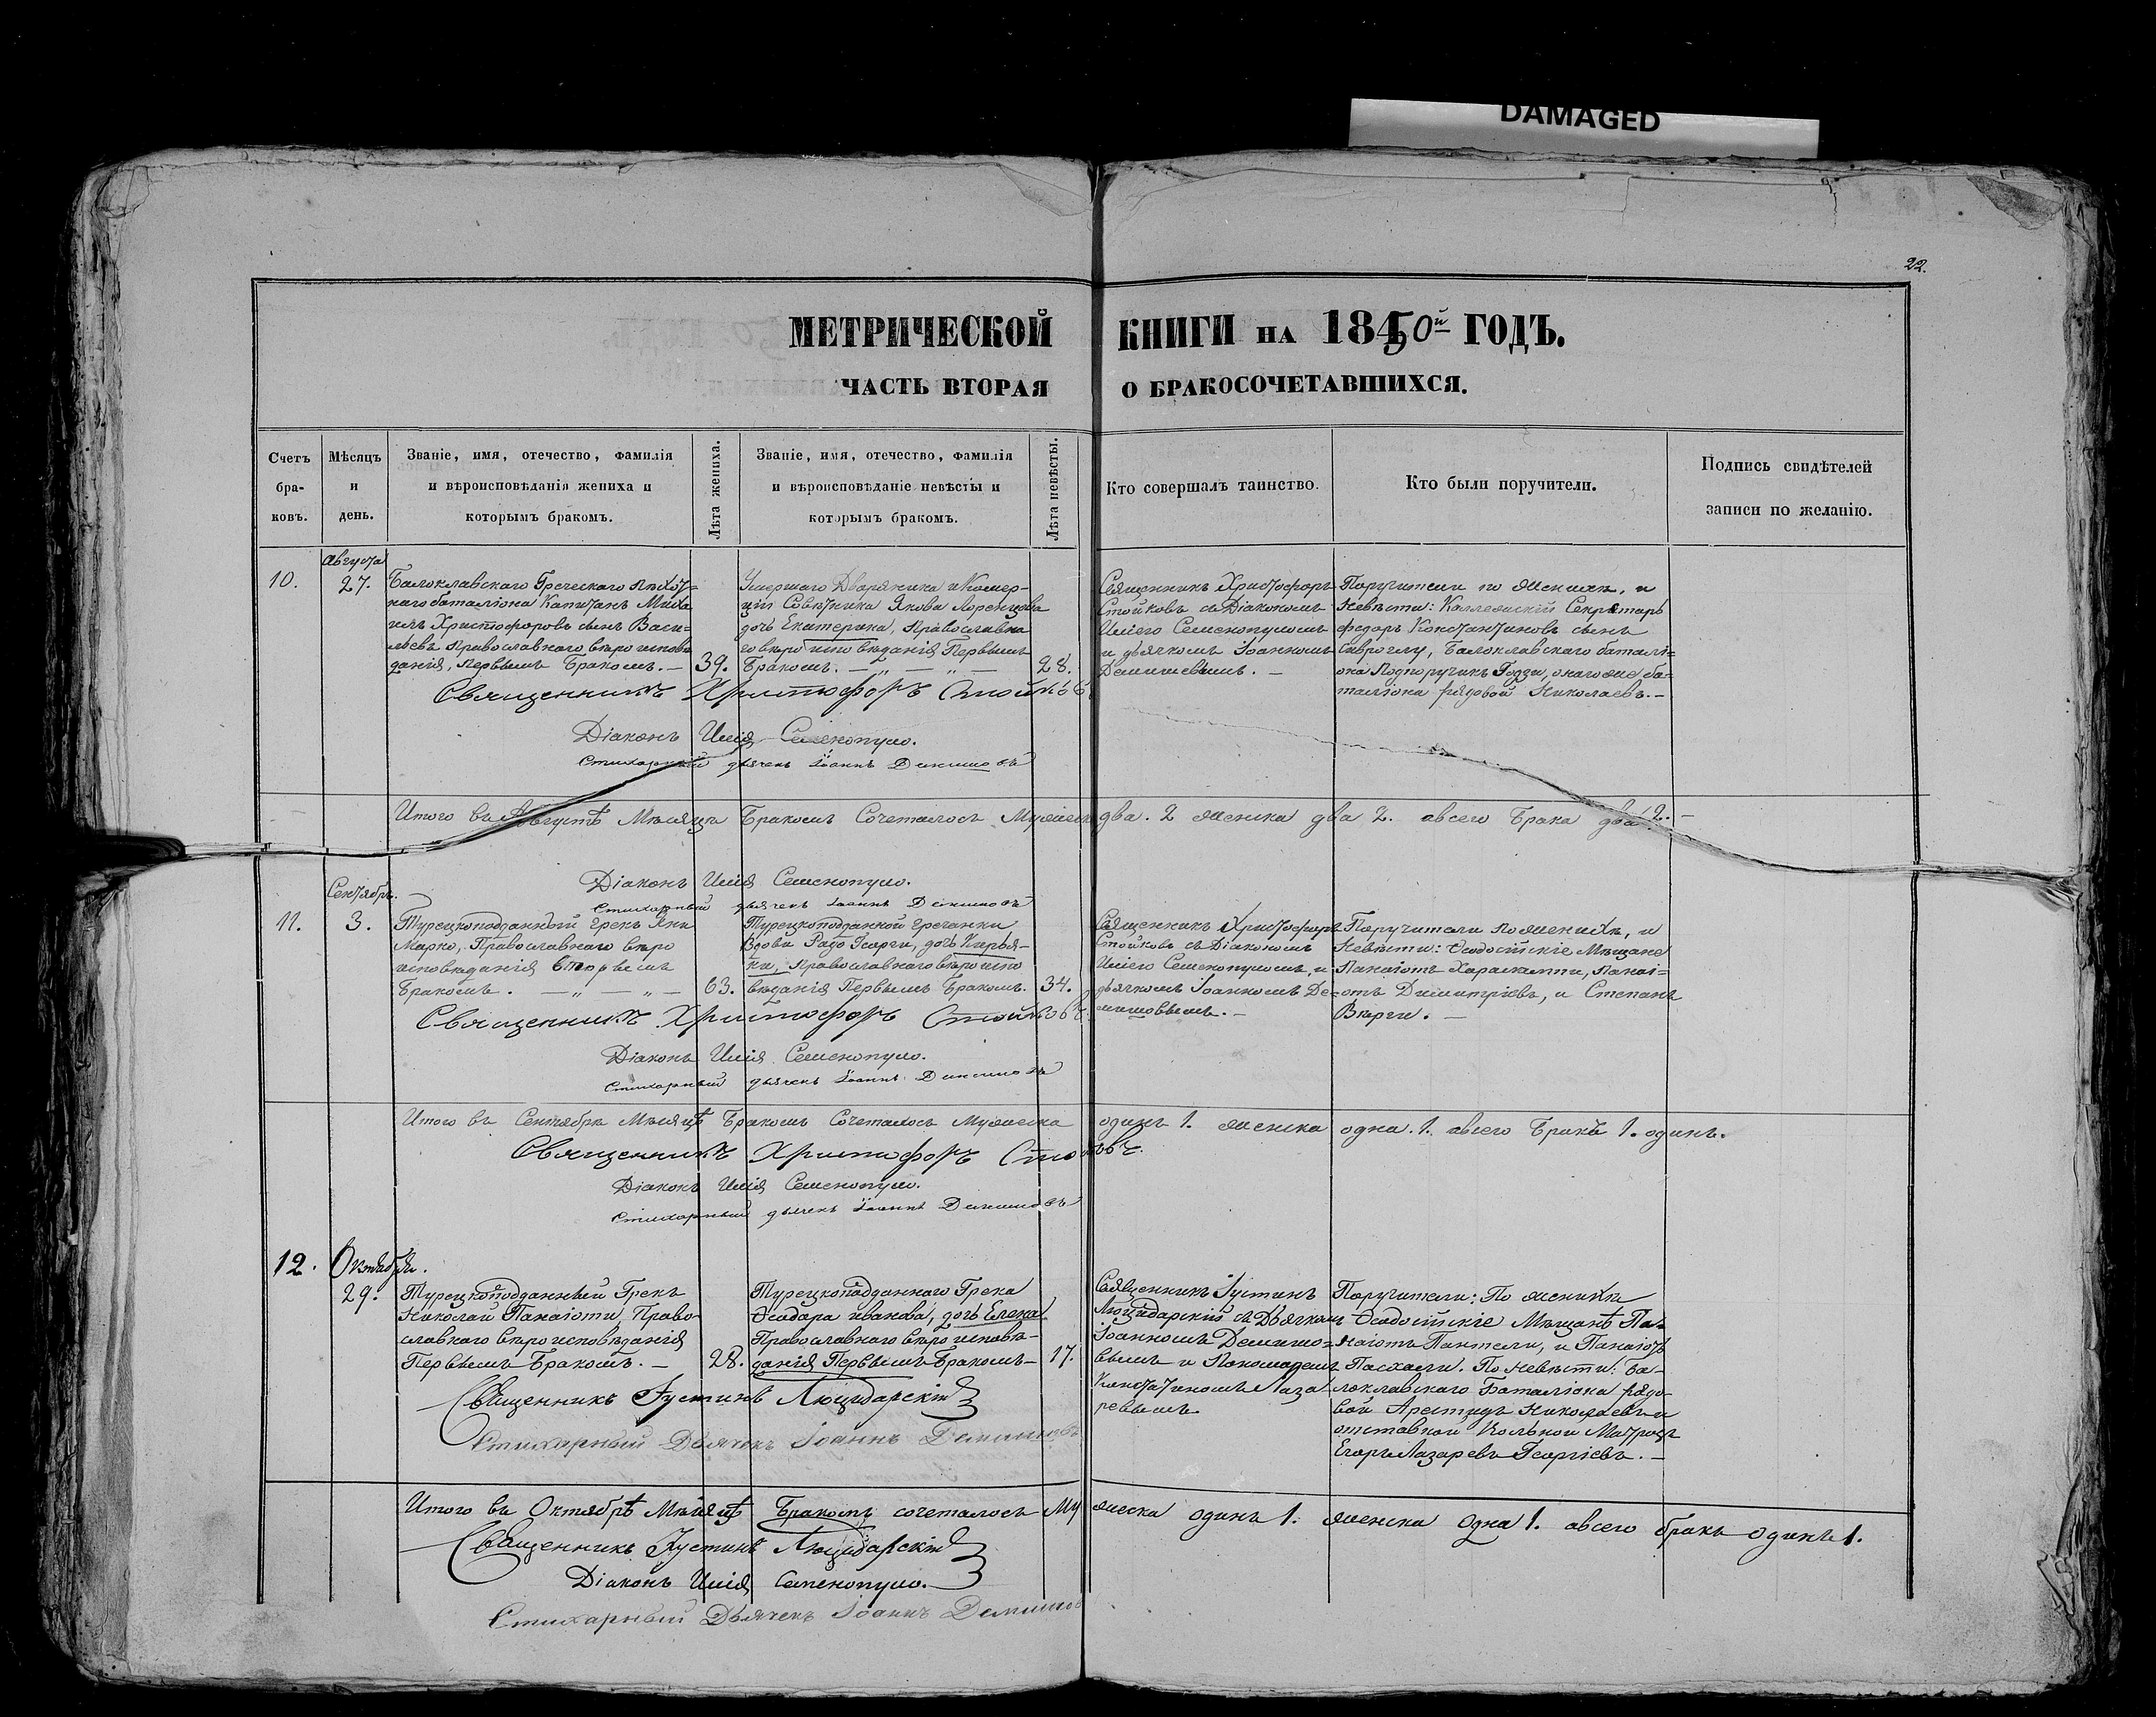 DAMAGED
22.
МЕТРИЧЕСКОЙ КНИГИ НА 1850й ГОДЪ.
ЧАСТЬ ВТОРАЯ О БРАКОСОЧЕТАВШИХСЯ.
Счетъ бра-ковъ.
Мѣсяцъ и день.
Званіе, имя, отечество, фамилія
и вѣроисповѣданія жениха и
которымъ бракомъ.
Лѣта жениха.
Званіе, имя, отечество, фамилія
и вѣроисповѣданіе невѣсты и
которымъ бракомъ.
Лѣта невѣсты.
Кто совершалъ таинство.
Кто были поручители.
Подпись свидѣтелей
записи по желанію.
10.
Августа
27.
Балоклавскаго Греческаго пѣхот=
наго баталіона Капитанъ Миха
илъ Христофоровъ сынъ Васи=
льевъ православнаго вѣро исповѣ
данія, первымъ Бракомъ. —
39.
Умершаго Дворянина и Комер-
ціи Совѣтника Якова Лоренцова
дочь Екатерина, православна
го вѣро исповѣданія Первымъ
Бракомъ. — „ — „ —
28.
Священникъ Христофоръ
Стойковъ съ Діакономъ
Иліею Семенопуломъ
и дьячкомъ Іоанномъ
Демишевымъ. —
Поручители по женихѣ, и
невѣсти: Коллежскій Секретарь
Федоръ Константиновъ сынъ
Сиврогли, Балоклавскаго баталі=
она Подпоручикъ Годзи, онаго же ба-
таліона рядовой Николаевъ. —
Священникъ Христофоръ Стойковъ
Діаконъ Илія Семенопуло.
Стихарный дьячекъ Іоаннъ Демишовъ
Итого въ Августѣ Мѣсяцѣ Бракомъ Сочеталось Мужеска два. 2 женска два 2. авсего Брака два. 2. —
Діаконъ Илія Семенопуло.
Стихарный дьячекъ Іоаннъ Демишовъ
Сентябрь.
11.
3.
Турецкоподданный грекъ Яни
Марко, Православнаго вѣро
исповѣданія вторымъ
Бракомъ. — „ — „ —
63.
Турецкоподданной гречанки
Вдови Радо Георги, дочь Кирья-
ки, православнаго вѣро испо
вѣданія Первымъ Бракомъ.
34.
Священникъ Христофоръ
Стойковъ съ Діакономъ
Иліею Семенопуломъ, и
дьячкомъ Іоанномъ Де-
мишовымъ. —
Поручители по женихѣ, и
Невѣсти: Ѳеодосійскіе Мѣщане
Панаіотъ Харалампи, Панаі=
отъ Димитріевъ, и Степанъ
Вѣрги. —
Священникъ Христофоръ Стойковъ.
Діаконъ Илія Семенопуло.
Стихарный дьячекъ Іоаннъ Демишовъ
Итого въ Сентябрѣ Мѣсяцѣ Бракомъ Сочеталось Мужеска одинъ 1. женска одна. 1. авсего Бракъ 1. одинъ.
Священникъ Христофоръ Стойковъ.
Діаконъ Илія Семенопуло.
Стихарный дьячекъ Іоаннъ Демишовъ
12.
Октября.
29.
Турецкоподданный Грекъ
Николай Панаіоти, Право-
славнаго вѣро исповѣданія
Первымъ Бракомъ. —
28.
Турецкоподданнаго Грека
Ѳеодара иванова, дочь Елена
Православнаго вѣро исповѣ-
данія Первымъ Бракомъ —
17.
Священникъ Іустинъ
Люцидарскій съ Дьячкомъ
Іоанномъ Демишо=
вымъ и Пономаремъ
Константиномъ Лаза
ревымъ
Поручители: По женихѣ
Ѳеодосійскіе Мѣщанѣ Па-
наіотъ Пантели, и Панаіотъ
Пасхали. По невѣсти: Ба-
локлавскаго Баталіона рядо-
вой Арестидъ Николаевъ и
отставной Вольной Матрозъ
Егоръ Лазаревъ Георгіевъ. —
Священникъ Іустинъ Люцидарскій
Стихарный Дьячекъ Іоаннъ Демишовъ
Итого въ Октябрѣ Мѣсяцѣ Бракомъ сочеталось Мужеска одинъ 1. женска одна 1. авсего бракъ одинъ 1.
Священникъ Іустинъ Люцидарскій
Діаконъ Илія Семенопуло.
Стихарный Дьячекъ Іоаннъ Демишов